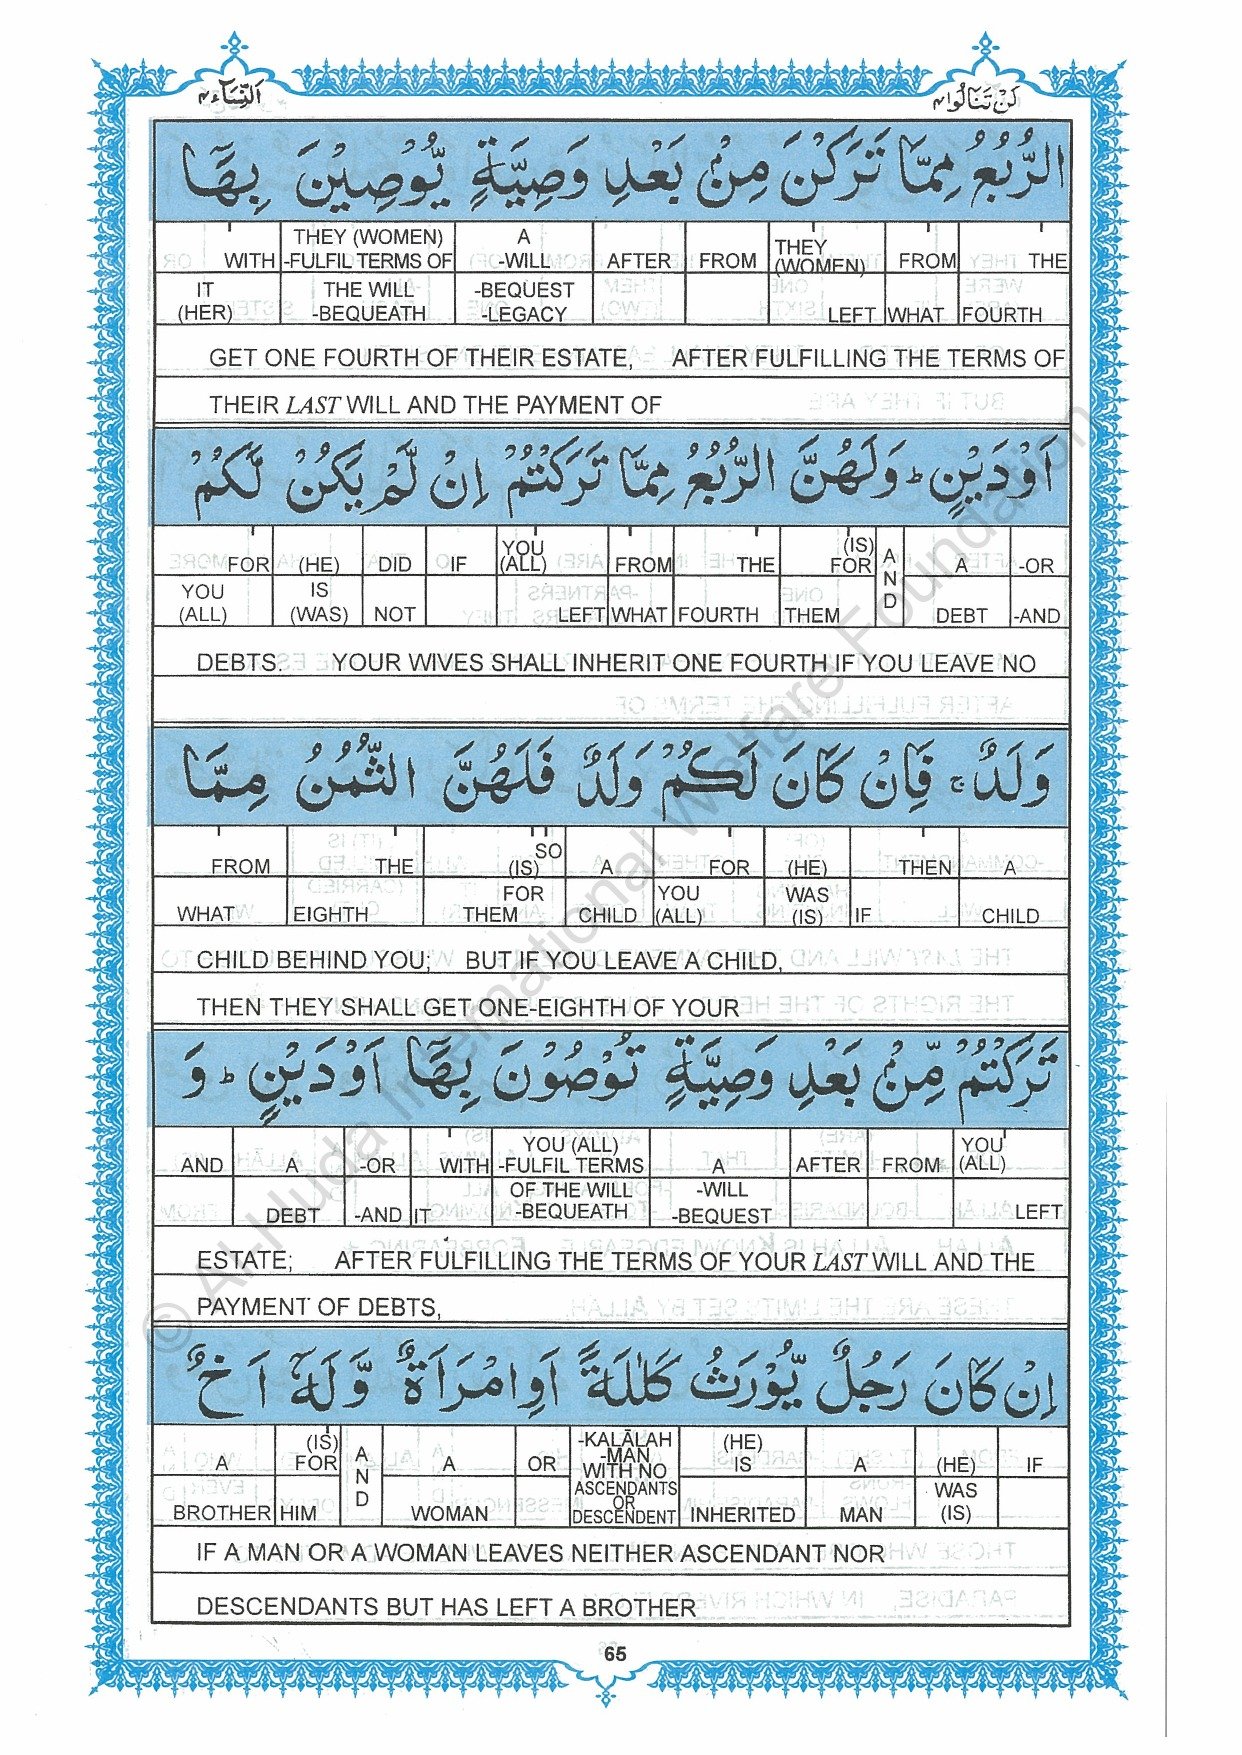 النِّسَآء ٤
لَنْ تَنَالُوا ٤
الرُّبُعُ مِمَّا تَرَكْنَ مِنْۢ بَعْدِ وَصِيَّةٍ يُّوْصِيْنَ بِهَآ
WITH THEY (WOMEN) -FULFIL TERMS OF A -WILL AFTER FROM THEY (WOMEN) FROM THE
IT (HER) THE WILL -BEQUEATH -BEQUEST -LEGACY LEFT WHAT FOURTH
GET ONE FOURTH OF THEIR ESTATE, AFTER FULFILLING THE TERMS OF
THEIR LAST WILL AND THE PAYMENT OF
اَوْ دَيْنٍ ؕ وَلَهُنَّ الرُّبُعُ مِمَّا تَرَكْتُمْ اِنْ لَّمْ يَكُنْ لَّكُمْ
FOR (HE) DID IF YOU (ALL) FROM THE (IS) FOR AND A -OR
YOU (ALL) IS (WAS) NOT LEFT WHAT FOURTH THEM DEBT -AND
DEBTS. YOUR WIVES SHALL INHERIT ONE FOURTH IF YOU LEAVE NO
وَلَدٌ ۚ فَاِنْ كَانَ لَكُمْ وَلَدٌ فَلَهُنَّ الثُّمُنُ مِمَّا
FROM THE SO (IS) A FOR (HE) THEN A
WHAT EIGHTH FOR THEM CHILD YOU (ALL) WAS (IS) IF CHILD
CHILD BEHIND YOU; BUT IF YOU LEAVE A CHILD,
THEN THEY SHALL GET ONE-EIGHTH OF YOUR
تَرَكْتُمْ مِّنْۢ بَعْدِ وَصِيَّةٍ تُوْصُوْنَ بِهَآ اَوْ دَيْنٍ ؕ وَ
AND A -OR WITH YOU (ALL) -FULFIL TERMS A AFTER FROM YOU (ALL)
DEBT -AND IT OF THE WILL -BEQUEATH -WILL -BEQUEST LEFT
ESTATE; AFTER FULFILLING THE TERMS OF YOUR LAST WILL AND THE
PAYMENT OF DEBTS,
اِنْ كَانَ رَجُلٌ يُّوْرَثُ كَلٰلَةً اَوِ امْرَاَةٌ وَّلَهٗٓ اَخٌ
A (IS) FOR AND A OR -KALĀLAH -MAN WITH NO (HE) IS A (HE) IF
BROTHER HIM WOMAN ASCENDANTS OR DESCENDENT INHERITED MAN WAS (IS)
IF A MAN OR A WOMAN LEAVES NEITHER ASCENDANT NOR
DESCENDANTS BUT HAS LEFT A BROTHER
65
© Al-Huda International Welfare Foundation